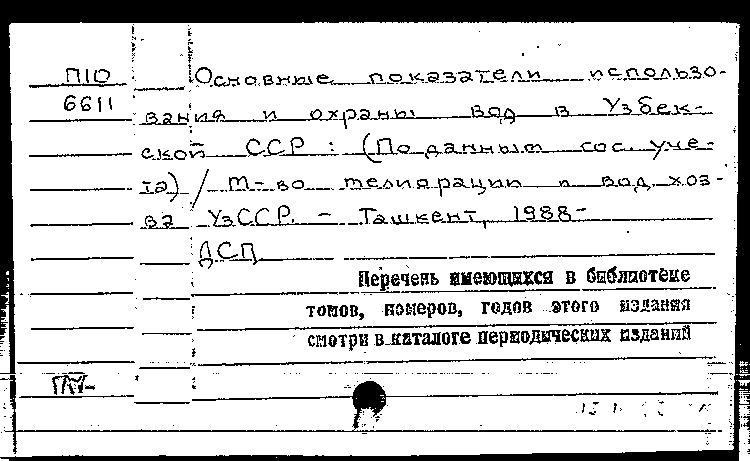 П10
6611
Основные показатели использо-
вания и охраны вод в Узбек-
ской ССР : (По данным гос. уче-
та) / М-во мелиорации и вод. хоз-
ва УзССР. – Ташкент, 1988-
ДСП
Перечень имеющихся в библиотеке
томов, номеров, годов этого издания
смотри в каталоге периодических изданий